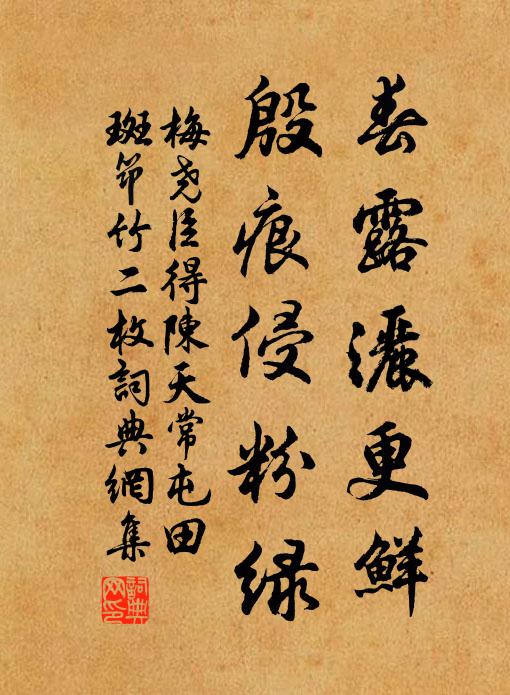 春露灑更鮮
殷痕侵粉绿
梅尧臣得陳天常屯田
斑笻竹二枚詞典網集